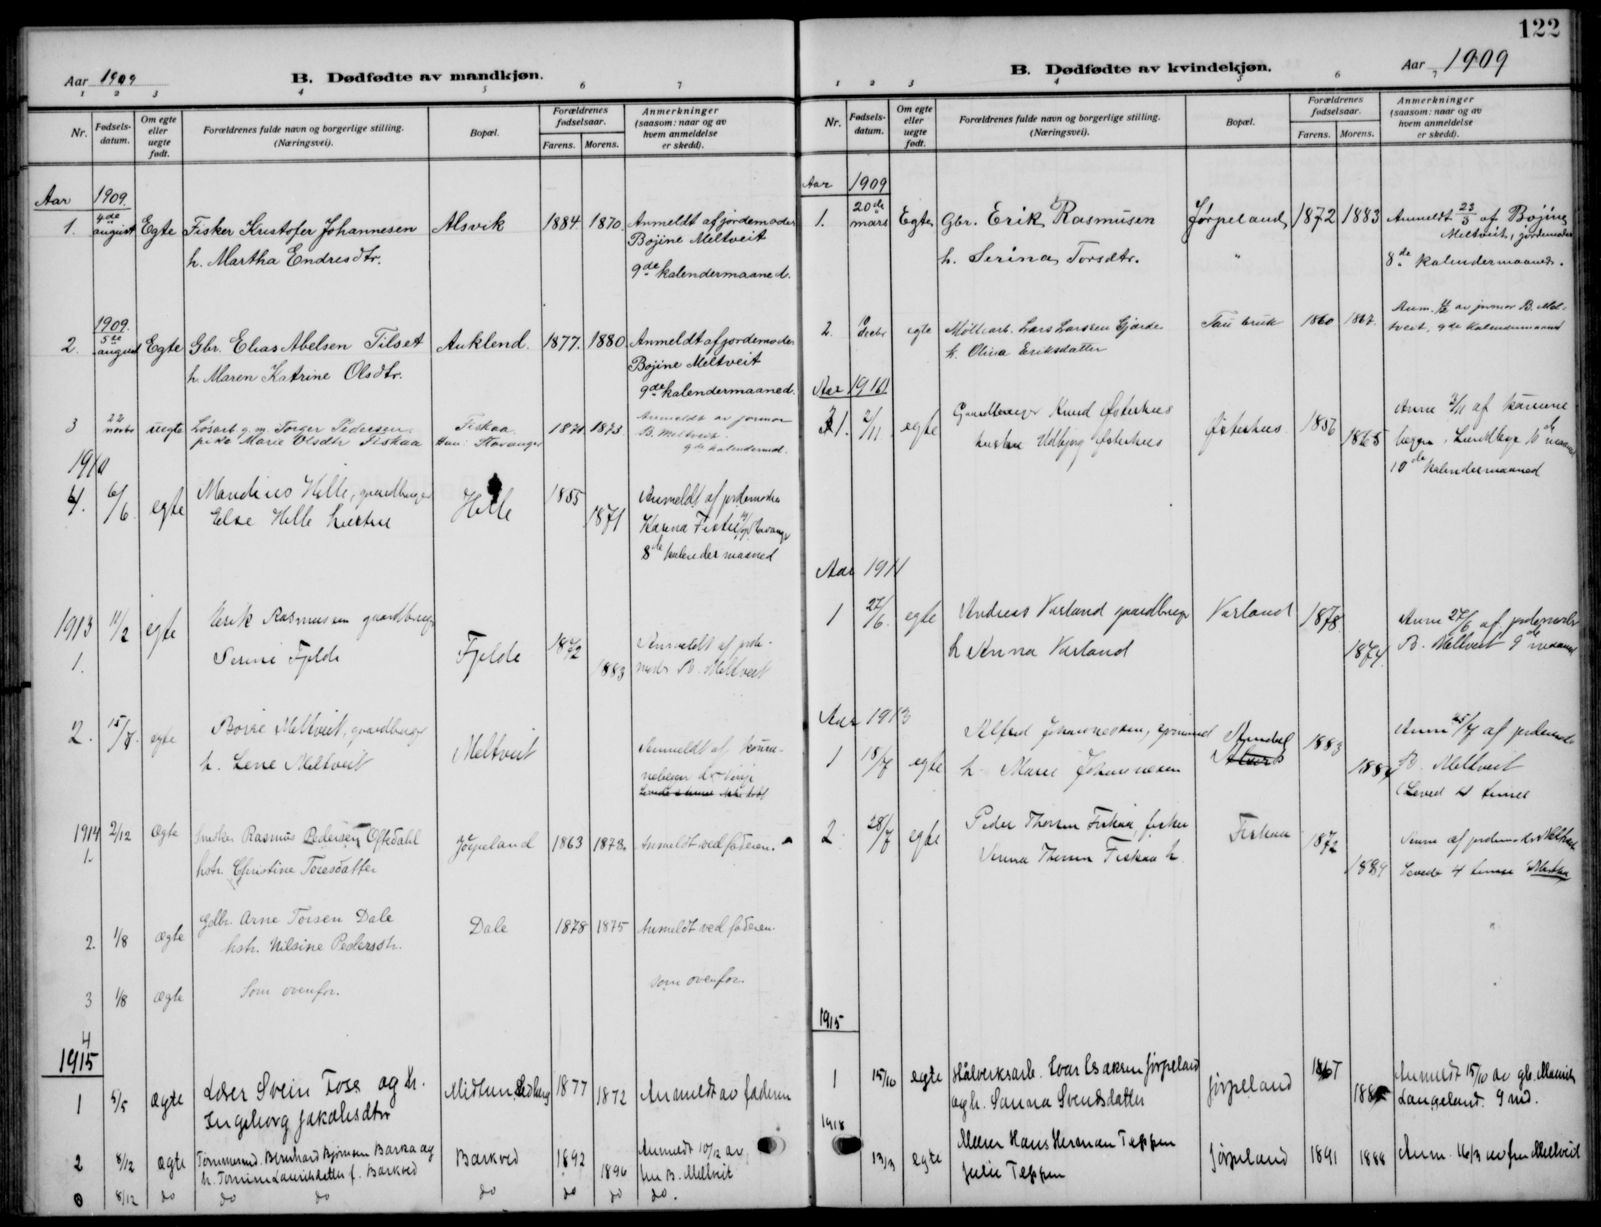 Aar 1909
B. Dødfødte av mandkjøn.
1 2 3 4 5 6 7
Nr.
Fødsels-
datum.
Om egte
eller
uegte
født.
Forældrenes fulde navn og borgerlige stilling.
(Næringsvei).
Bopæl.
Forældrenes
fødselsaar.
Farens. Morens.
Anmerkninger
(saasom: naar og av
hvem anmeldelse
er skedd).
Aar 1909.
1. 4de august Egte Fisker Kristofer Johannesen Alsvik 1884. 1870. Anmeldt af jordemoder
h. Martha Endresdtr. Bojine Meltveit
9de kalendermaaned.
1909.
2. 5te august Egte Gbr. Elias Abelsen Tilset Auklend. 1877. 1880 Anmeldt af jordemoder
h. Maren Katrine Olsdtr. Bojine Meltveit
9de kalendermaaned.
3 22 novbr uegte Løsarb. g. m. Torger Pedersen Fiskaa 1871 1873 Anmeldt av jormor
pike Marie Olsdtr Fiskaa Stavanger B. Meltveit
9de kalendermd.
1910
4. 6/6 egte Mandius Helle, gaardbruger Helle 1855 1871 Anmeldt af jordemoder
Else Helle hustru Karena Fister
8de kalendermaaned
1913 11/2 egte Erik Rasmussen gaardbruger Fjelde 1872 1883 Anmeldt af jorde-
1. Serine Fjelde moder B. Meltveit
2. 15/8 egte Meltveit, gaardbruger Meltveit
h. Lene Meltveit Anmeldt af
1914 2/12 Ægte Rasmus Pedersen Oftedahl Jørpeland 1863 1873. Anmeldt ved faderen.
1. hstr. Christine Toresdatter
2. 1/8 Ægte Gdbr. Arne Torsen Dale Dale 1878 1875 Anmeldt ved faderen
hstr. Nilsine Pedersdtr.
3 1/8 Ægte Som ovenfor. som ovenfor.
4
1915
1 5/5 ægte Lærer Svein Foss og h. Midtun 1877 1872 Anmeldt av faderen
Ingeborg Jakobsdtr
2 8/12 ægte Tømmermd. Bernhard Bjørnsen Barka og Barkved 1892 1896 Anmeldt 10/12 av
h. Tomine Lauritsdatter f. Barkved fru B. Meltveit
8/12 do do do do do do do.
122
Aar 1909
B. Dødfødte av kvindekjøn.
1 2 3 4 5 6 7
Nr.
Fødsels-
datum.
Om egte
eller
uegte
født.
Forældrenes fulde navn og borgerlige stilling.
(Næringsvei).
Bopæl.
Forældrenes
fødselsaar.
Farens. Morens.
Anmerkninger
(saasom: naar og av
hvem anmeldelse
er skedd).
Aar 1909
1. 20de mars Egte Gbr. Erik Rasmusen Jørpeland 1872 1883 Anmeldt 23/3 af Bojine
h. Serina Torsdtr. " Meltveit, jordemoder
8de kalendermaaned.
2. decbr egte Møllearb. Lars Larssen Gjerde Tau bruk 1860 1867. Anm. av jormor B. Mel-
h. Olina Eriksdatter tveit, 9de kalendermaaned
Aar 1910
1. 2/11 egte Gaardbruger Knud Østerhus Østerhus 1856 1865
hustru Østerhus
10de kalendermaaned
Aar 1911
1 27/6. egte Andreas Varland gaardbruger Varland 1878. 1874. Anm 27/6 af jordemoder
h Anna Varland B. Meltveit 9de maaned
Aar 1913
1 18/7 egte Alfred Johannessen, 1883 1884 Anm af jordemoder
h. Marie Johannesen B. Meltveit
(Leved 4 timer
2. 28/7 egte Peder Thorsen Fiskaa, fisker Fiskaa 1872 1889 Anm af jordemoder Meltveit
Anna Thorsen Fiskaa h. Levede 4 timer
1915
1 15/10 egte Halverksarb. Ivar Isaksen Jørpeland Jørpeland 1867 Anmeldt 15/10 av
og h. Sanna Svendsdatter Langeland. 9 md.
1918
13/3 egte Møller Hans Herman Teppen Jørpeland 1891 1888 Anm. 16/3 av fru Meltveit
Julie Teppen